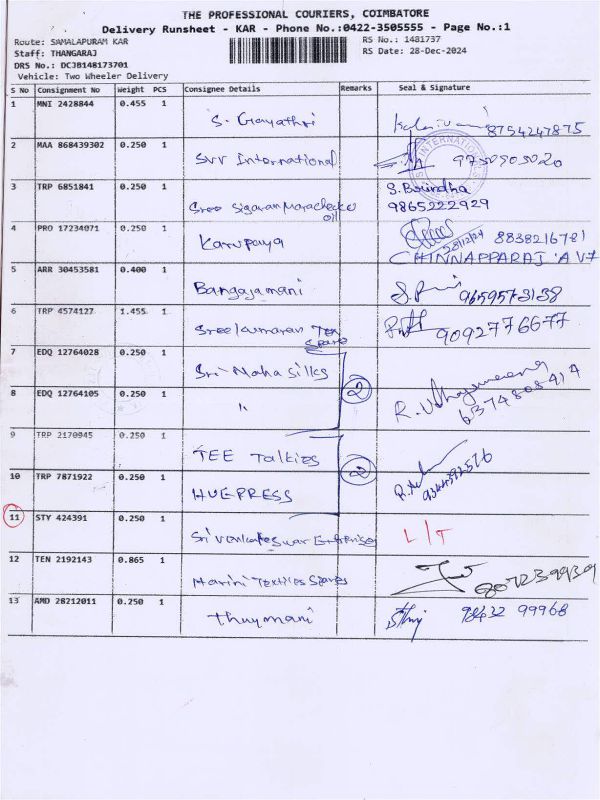 THE PROFESSIONAL COURIERS, COIMBATORE
Delivery Runsheet - KAR - Phone No.:0422-3505555 - Page No.:1
Route: SAMALAPURAM KAR
RS No.: 1481737
Staff: THANGARAJ
RS Date: 28-Dec-2024
DRS No.: DCJB148173701
Vehicle: Two Wheeler Delivery
S No Consignment No Weight PCS Consignee Details Remarks Seal & Signature
1 MNI 2428844 0.455 1 S. Gayathri 8754247875
2 MAA 868439302 0.250 1 SVV International
3 TRP 6851841 0.250 1 Sree Sigaram Marachekku oil S. Boundha 9865222929
4 PRO 17234071 0.250 1 Karupaya 28/12/24 8838216781 CHINNAPPARAJ A
5 ARR 30453581 0.400 1 Bangajamani 9659573138
6 TRP 4574127 1.455 1 Sree Kumaran Tex Spares 9092776677
7 EDQ 12764028 0.250 1 Sri Maha Silks
8 EDQ 12764105 0.250 1 " 2 6374808414
9 TRP 2170945 0.250 1 TEE Talkies
10 TRP 7871922 0.250 1 HUEPRESS 2
11 STY 424391 0.250 1 Sri Venkateswar Enterprises L/T
12 TEN 2192143 0.865 1 Harini Textiles Spares
13 AMD 28212011 0.250 1 Thuymani 98432 99968